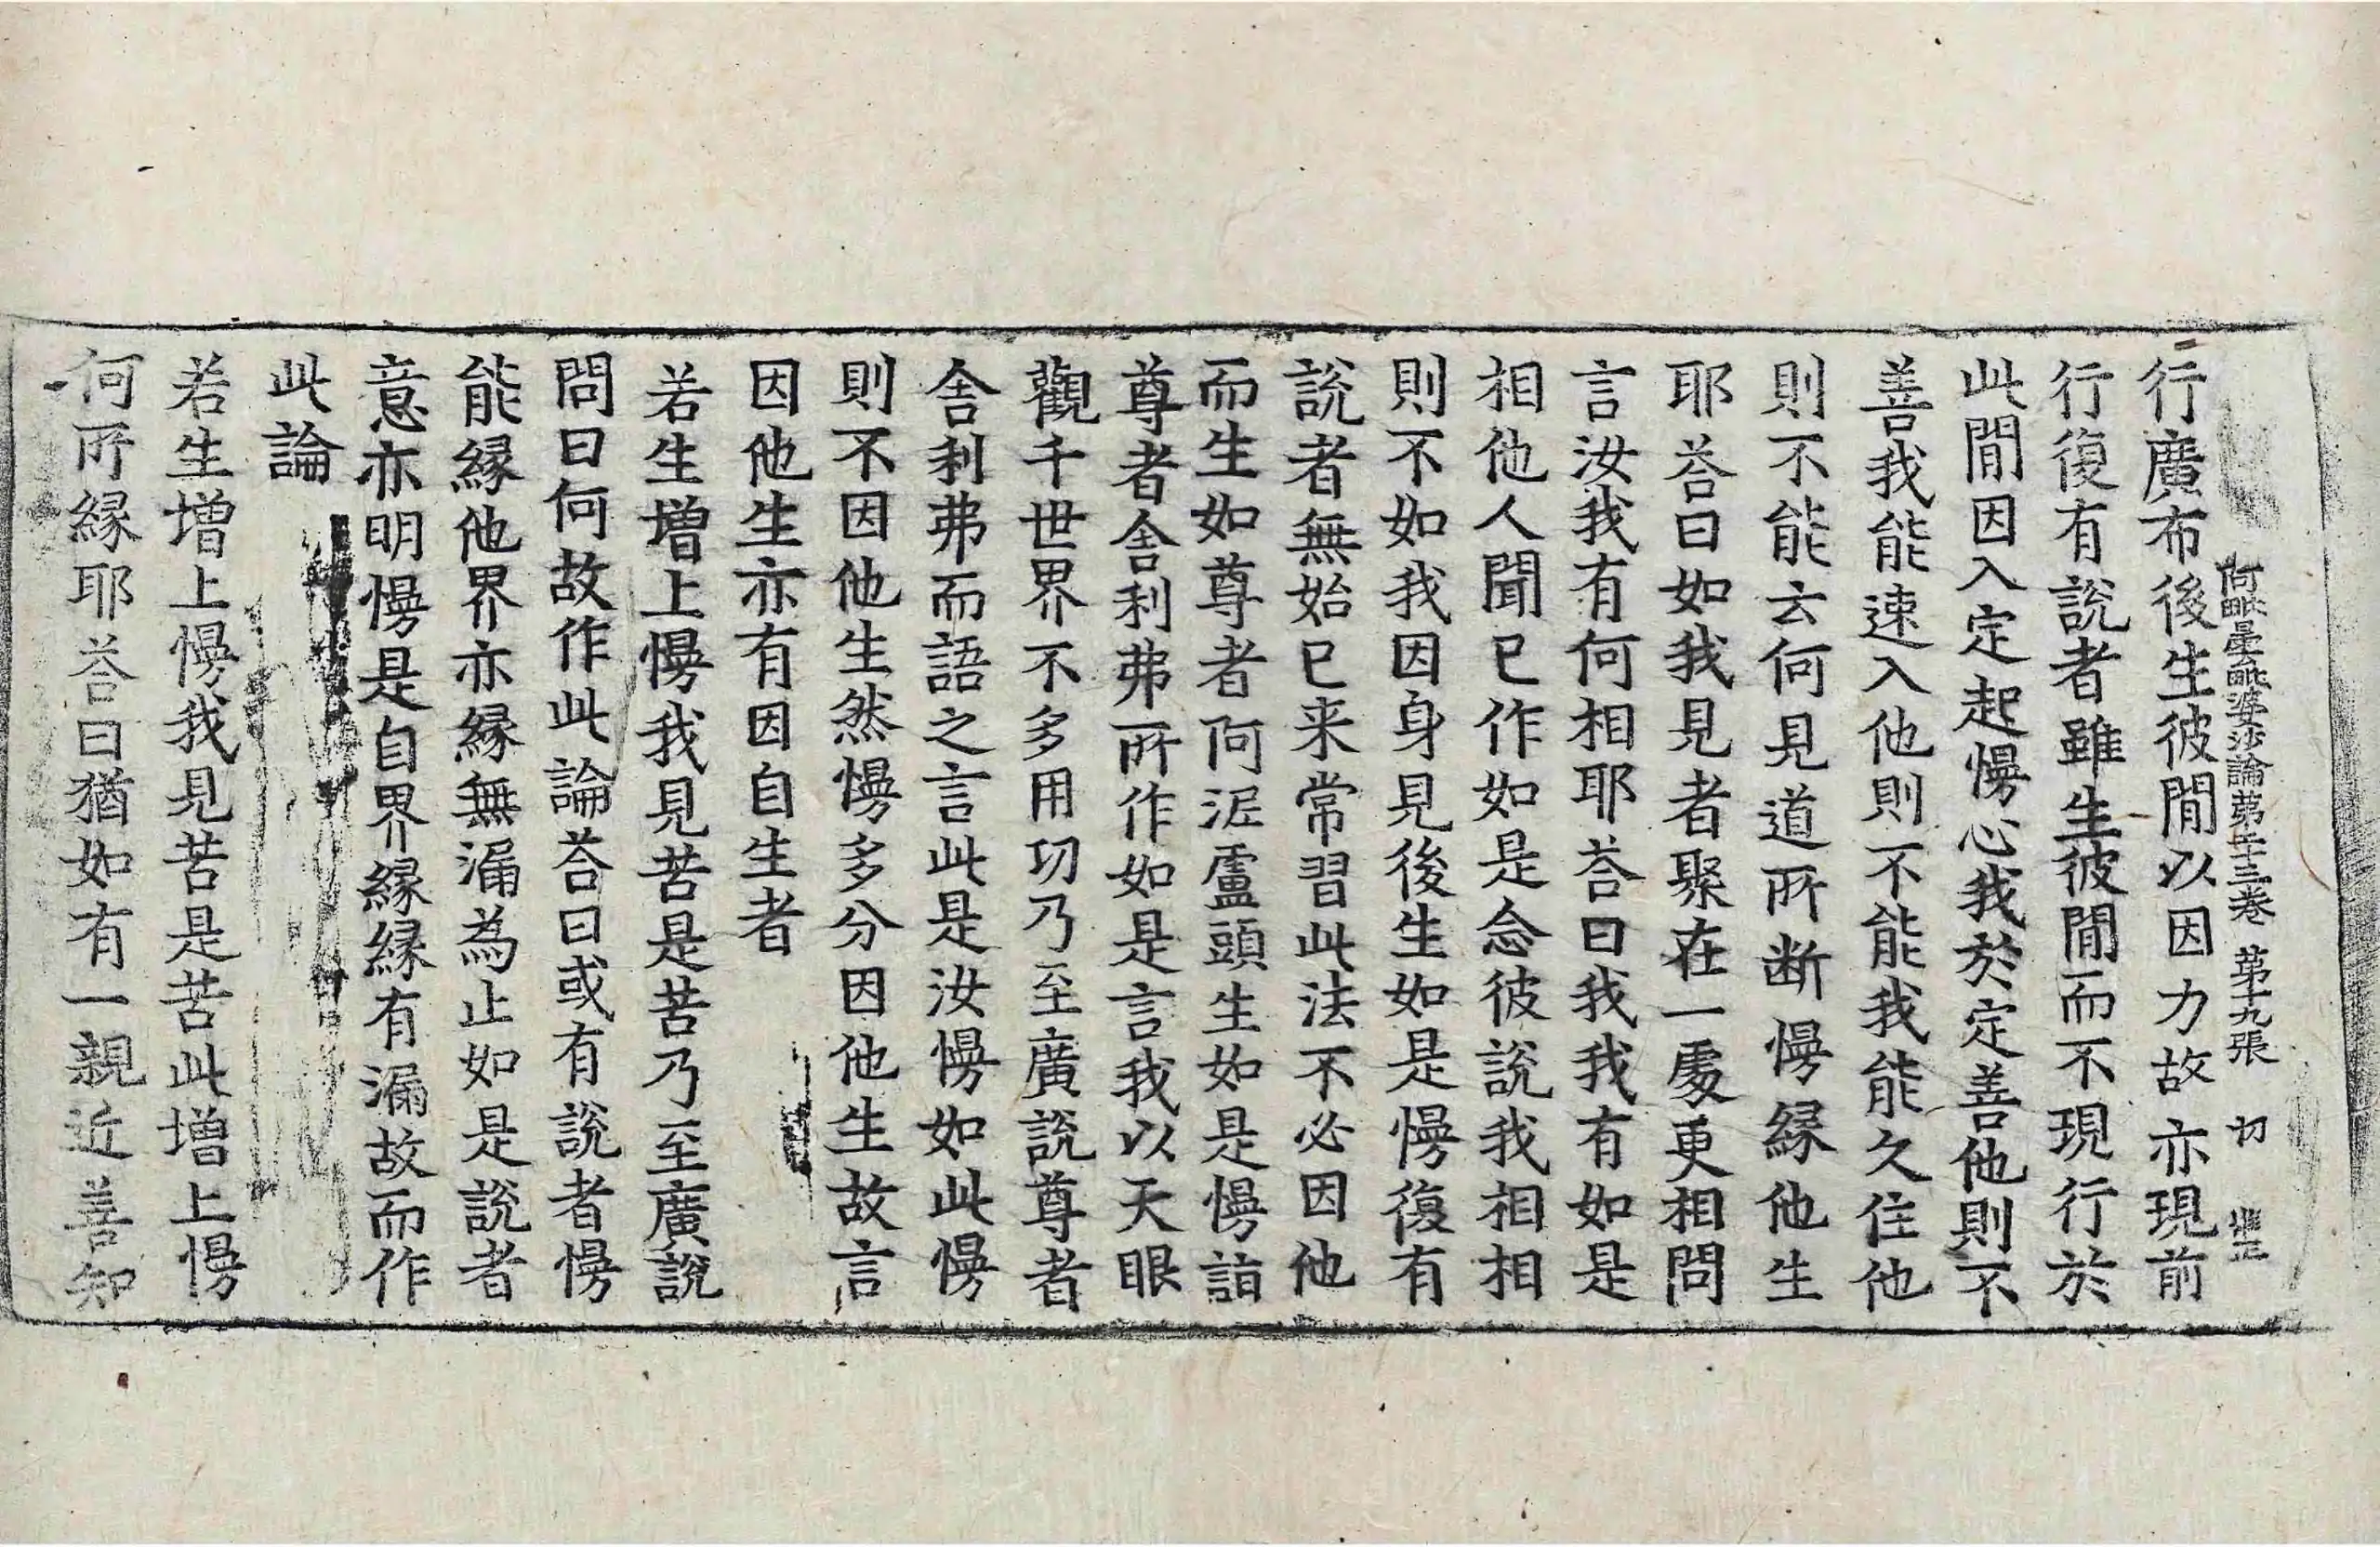 阿毗曇毗婆沙論第二十三卷 第十九張 切
行廣布後生彼間以因力故亦現前
行復有說者雖生彼間而不現行於
此間因入定起慢心我於定善他則不
善我能速入他則不能我能久住他
則不能云何見道所断慢緣他生
耶荅曰如我見者聚在一處更相問
言汝我有何相耶荅曰我我有如是
相他人聞已作如是念彼說我相相
則不如我因身見後生如是慢復有
說者無始已来常習此法不必因他
而生如尊者阿泥盧頭生如是慢詣
尊者舍利弗所作如是言我以天眼
觀千世界不多用功乃至廣說尊者
舍利弗而語之言此是汝慢如此慢
則不因他生然慢多分因他生故言
因他生亦有因自生者
若生增上慢我見苦是苦乃至廣說
問曰何故作此論荅曰或有說者慢
能緣他界亦緣無漏為止如是說者
意亦明慢是自界緣緣有漏故而作
此論
若生增上慢我見苦是苦此增上慢
何所緣耶荅曰猶如有一親近善知